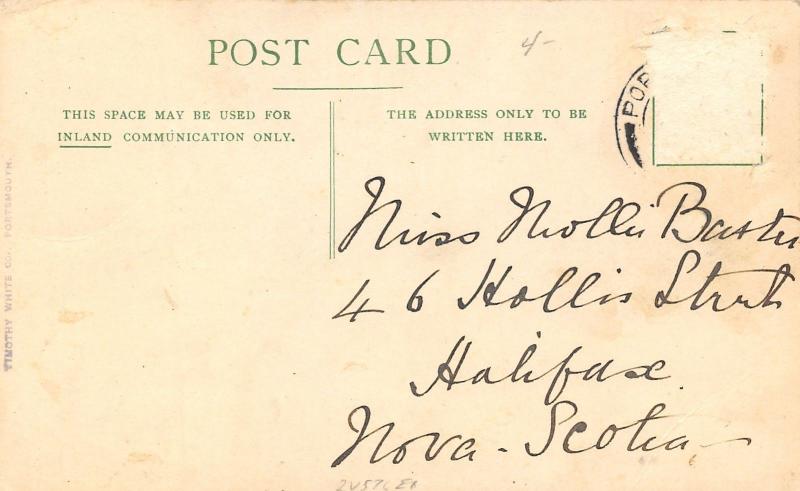 POST CARD
4/-
THIS SPACE MAY BE USED FOR
INLAND COMMUNICATION ONLY.
THE ADDRESS ONLY TO BE
WRITTEN HERE.
POR
TIMOTHY WHITE CO. PORTSMOUTH.
Miss Mollie
46 Hollis Street
Halifax
Nova-Scotia